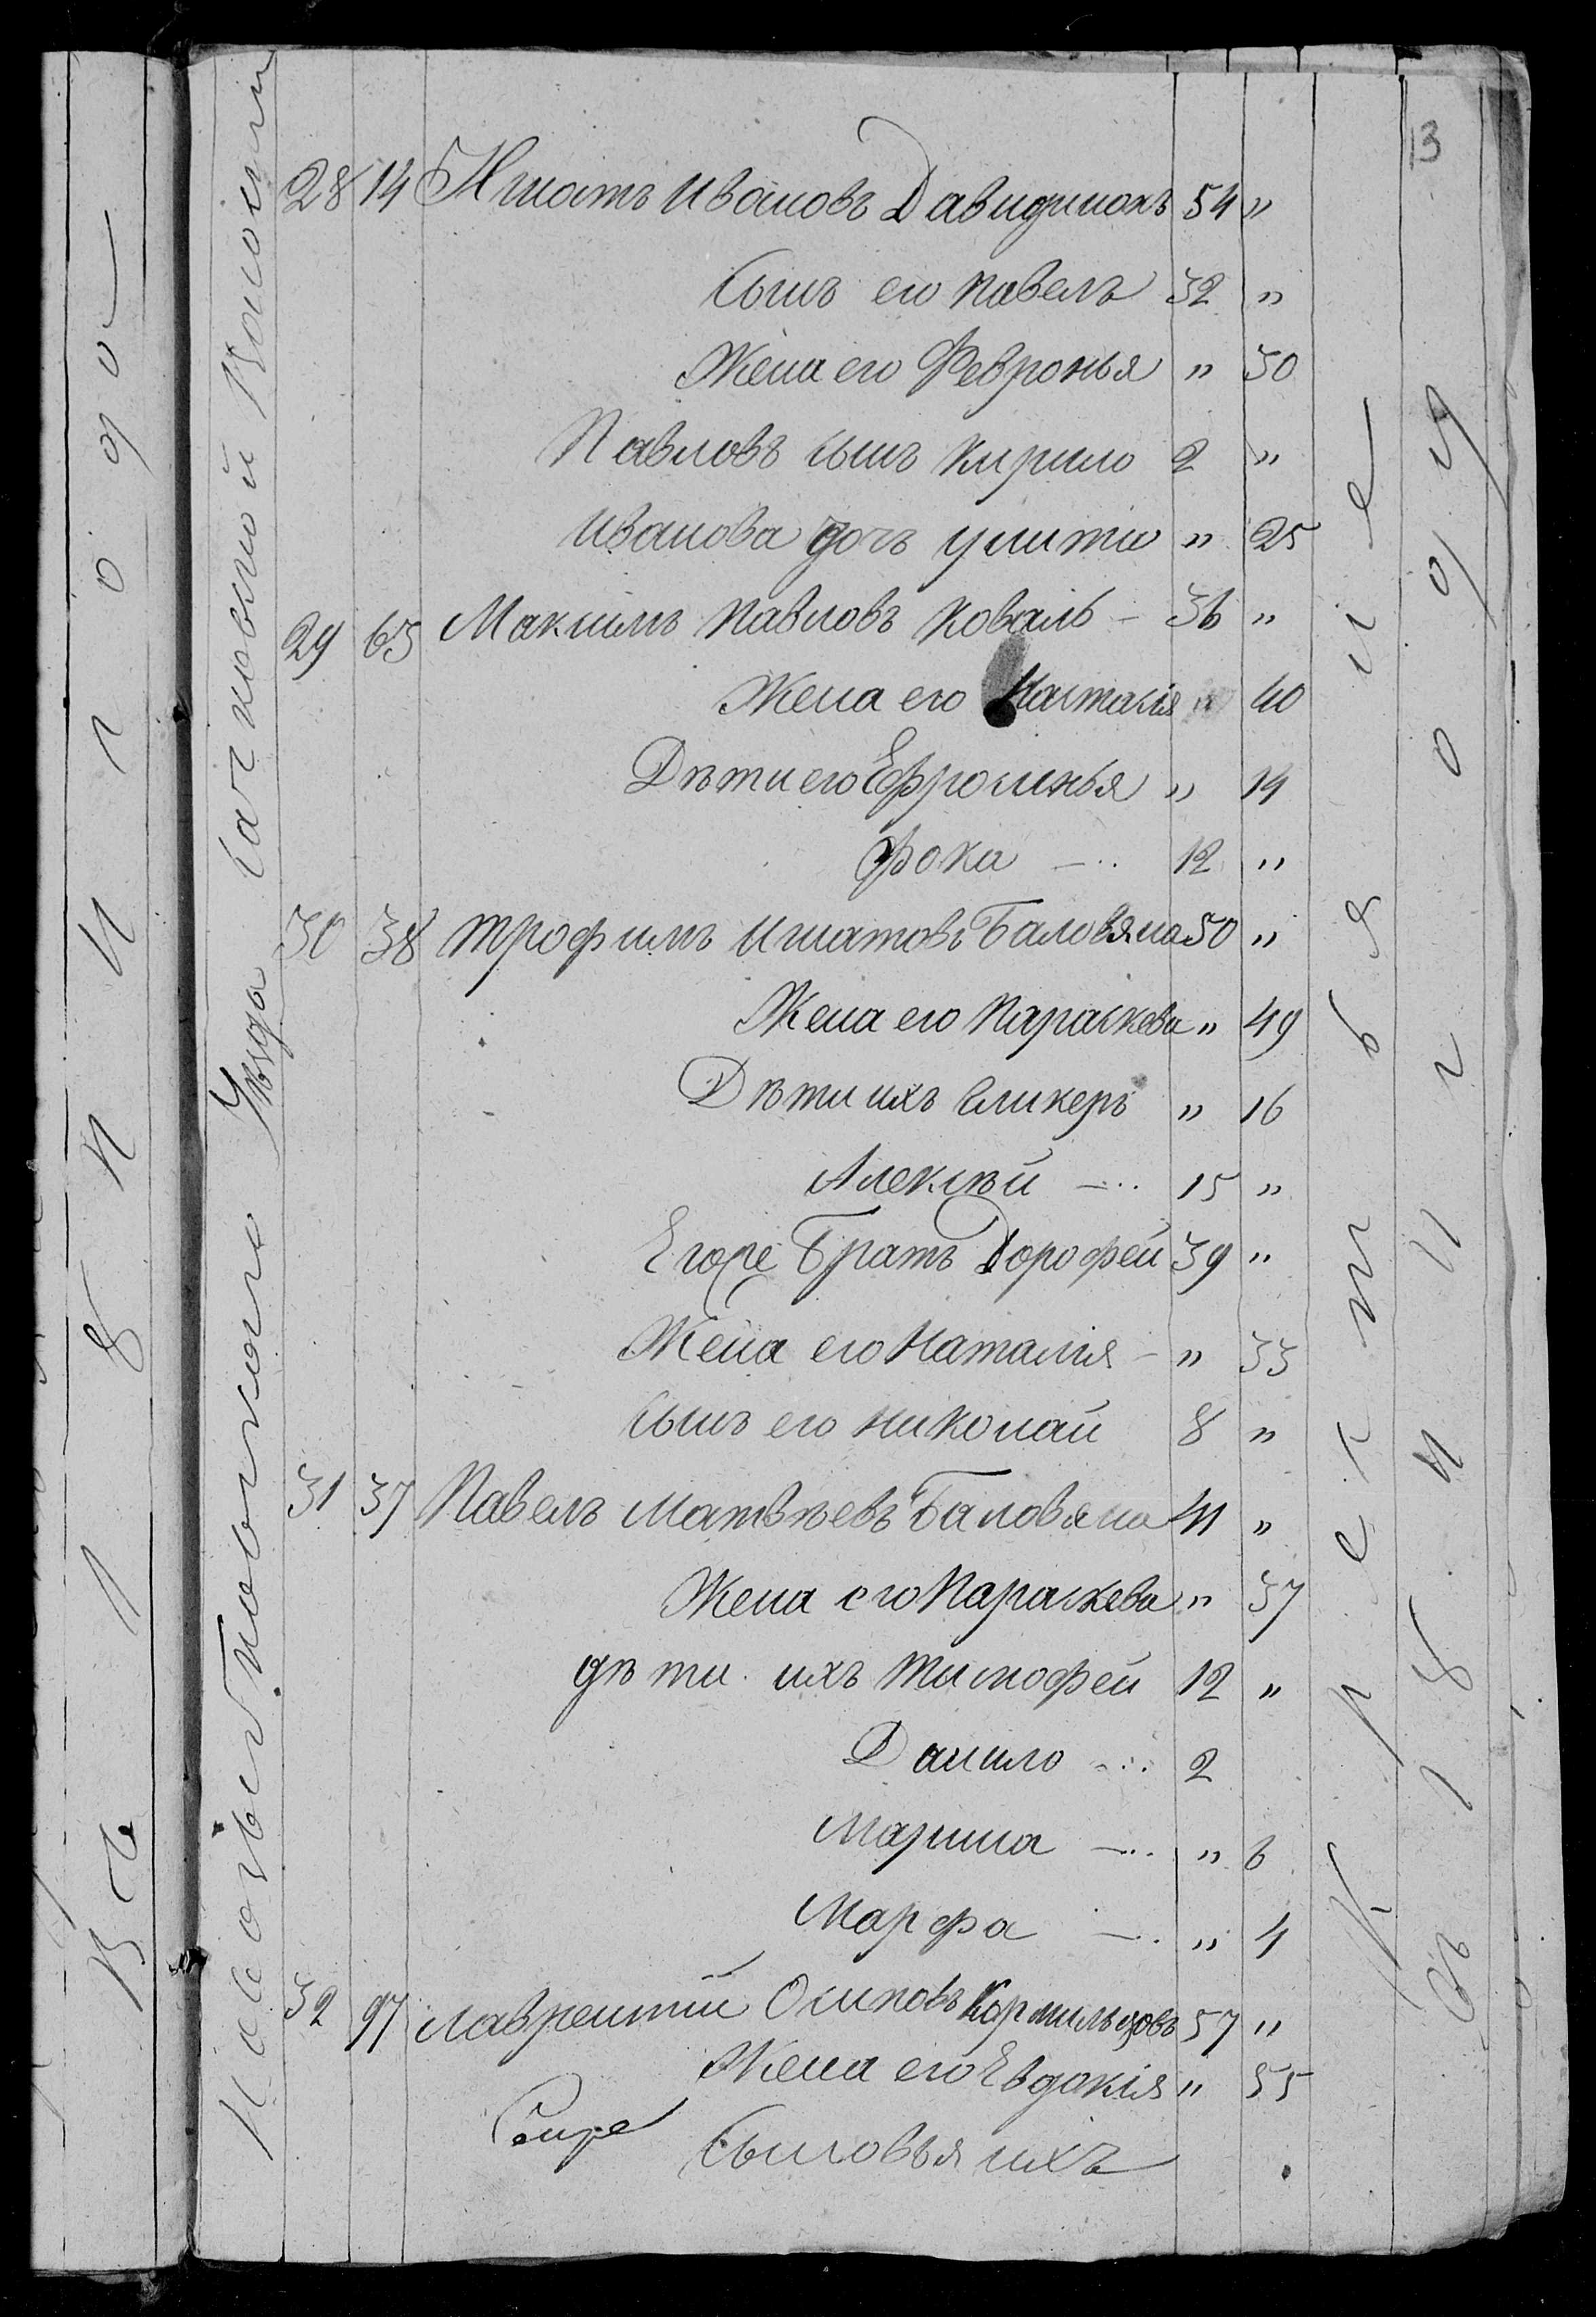 13
28 14 Игнатъ Ивановъ Давидинокъ 54 "
Сынъ его Павелъ 32 "
Жена его Февронья " 30
Павловъ сынъ Кирило 2 "
Иванова дочь Улита " 25
29 65 Максимъ Павловъ Коваль - 36 "
Жена его Настасія " 40
Дѣти его Ефросинья " 14
Фока 12 "
30 38 Трофимъ Игнатовъ Баловяна 50 "
Жена его Параскева " 49
Дѣти ихъ Гликеръ " 16
Алексѣй 15 "
Братъ Дорофей 39 "
Жена его Наталія - " 33
Сынъ его Николай 8 "
31 37 Павелъ Матвѣевъ Баловяна 41 "
Жена его Параскева " 37
дѣти ихъ Тимофей 12 "
Данило 2
Марина " 6
Марфа " 4
32 97 Лаврентій Осиповъ Кормильцовъ 57 "
Жена его Евдокія " 55
Сыновья ихъ
Уѣзда
Волости
Крестьяне
1877 году